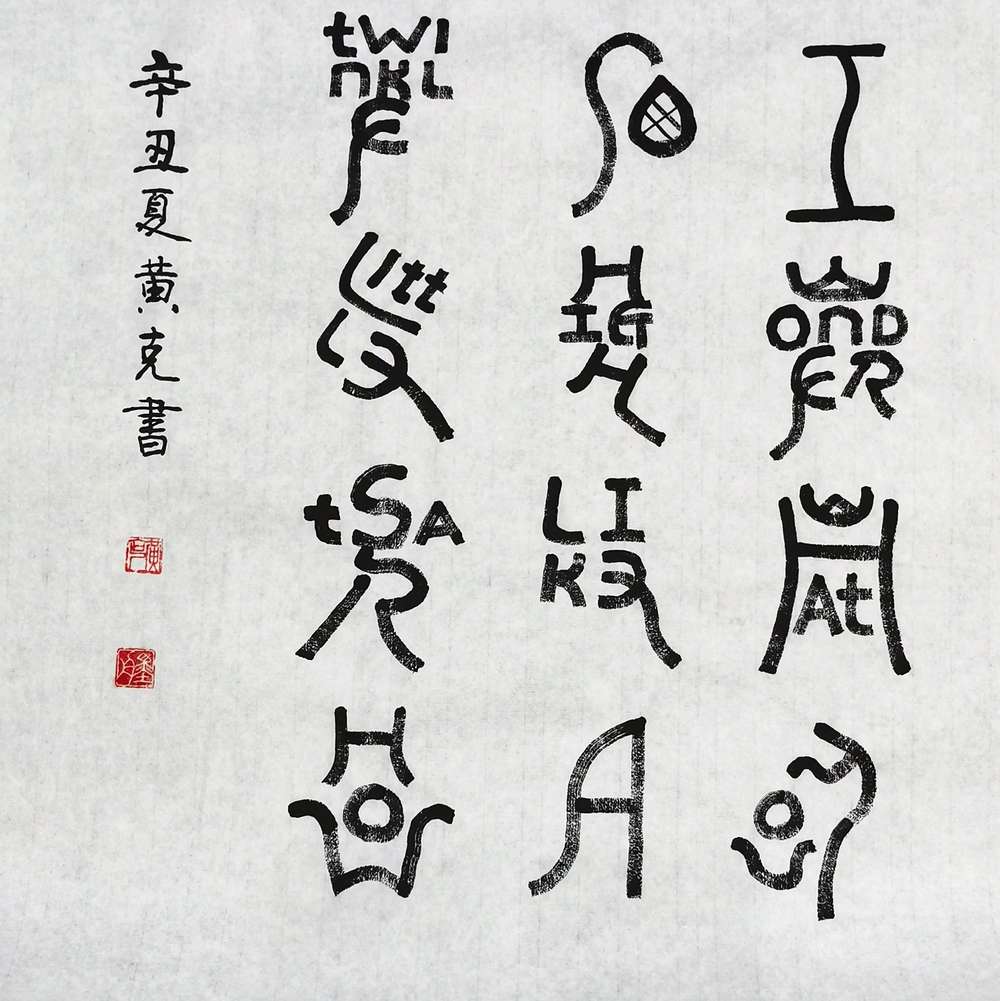 I WONDER WHAt YOU
SO HIGH LIKE A
tWINKLE LIttLE StAR HOW
辛丑夏黄克書